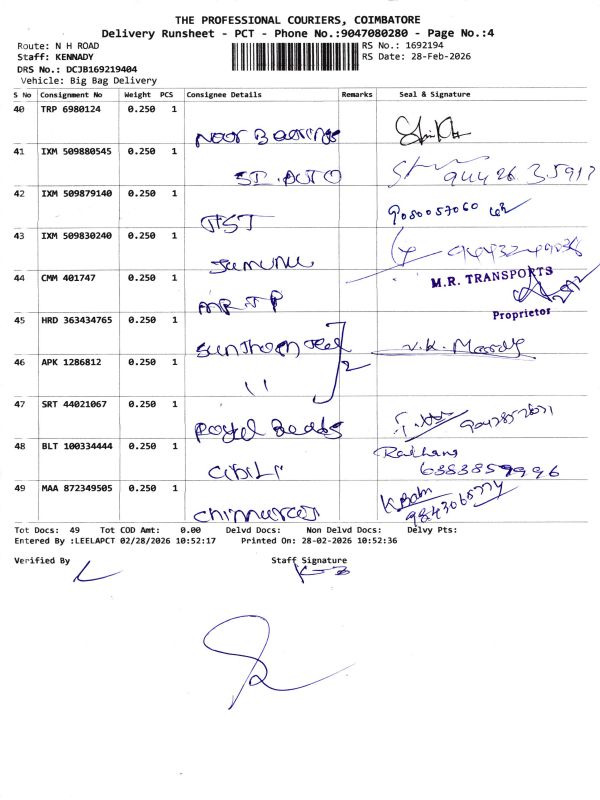 THE PROFESSIONAL COURIERS, COIMBATORE
Delivery Runsheet - PCT - Phone No.:9047080280 - Page No.:4
Route: N H ROAD RS No.: 1692194
Staff: KENNADY RS Date: 28-Feb-2026
DRS No.: DCJB169219404
Vehicle: Big Bag Delivery
S No Consignment No Weight PCS Consignee Details Remarks Seal & Signature
40 TRP 6980124 0.250 1
Noor Bearings
41 IXM 509880545 0.250 1
SI. AUTO
42 IXM 509879140 0.250 1 9080057060
JST
43 IXM 509830240 0.250 1
44 CMM 401747 0.250 1 M.R. TRANSPORTS
MR TP
Proprietor
45 HRD 363434765 0.250 1
V.K.
46 APK 1286812 0.250 1
11 2
47 SRT 44021067 0.250 1
48 BLT 100334444 0.250 1
6383859996
49 MAA 872349505 0.250 1
Tot Docs: 49 Tot COD Amt: 0.00 Delvd Docs: Non Delvd Docs: Delvy Pts:
Entered By :LEELAPCT 02/28/2026 10:52:17 Printed On: 28-02-2026 10:52:36
Verified By Staff Signature